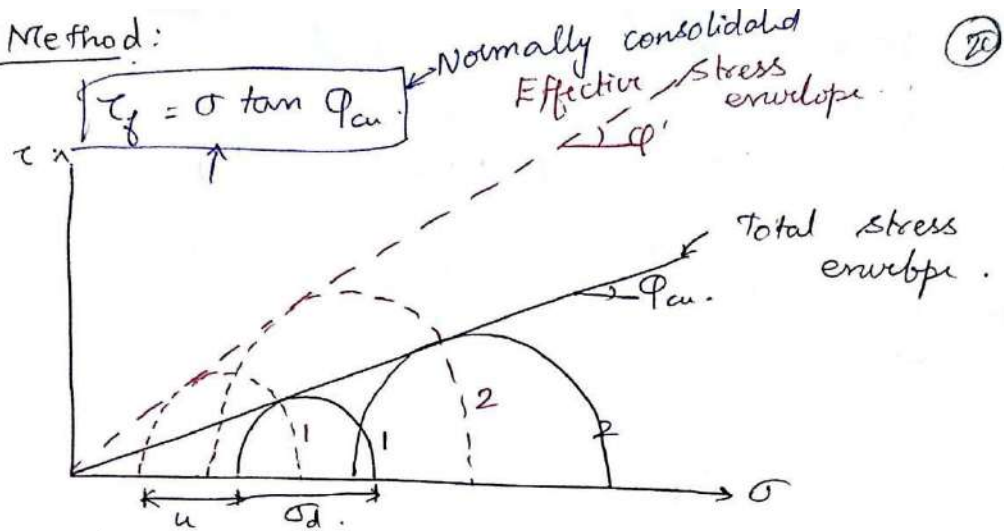 Method:
τf = σ tan φcu.
Normally consolidated
20
Effective stress
envelope.
τ
φ'
Total stress
envelope.
φcu.
1
1
2
2
σ
u
σd.